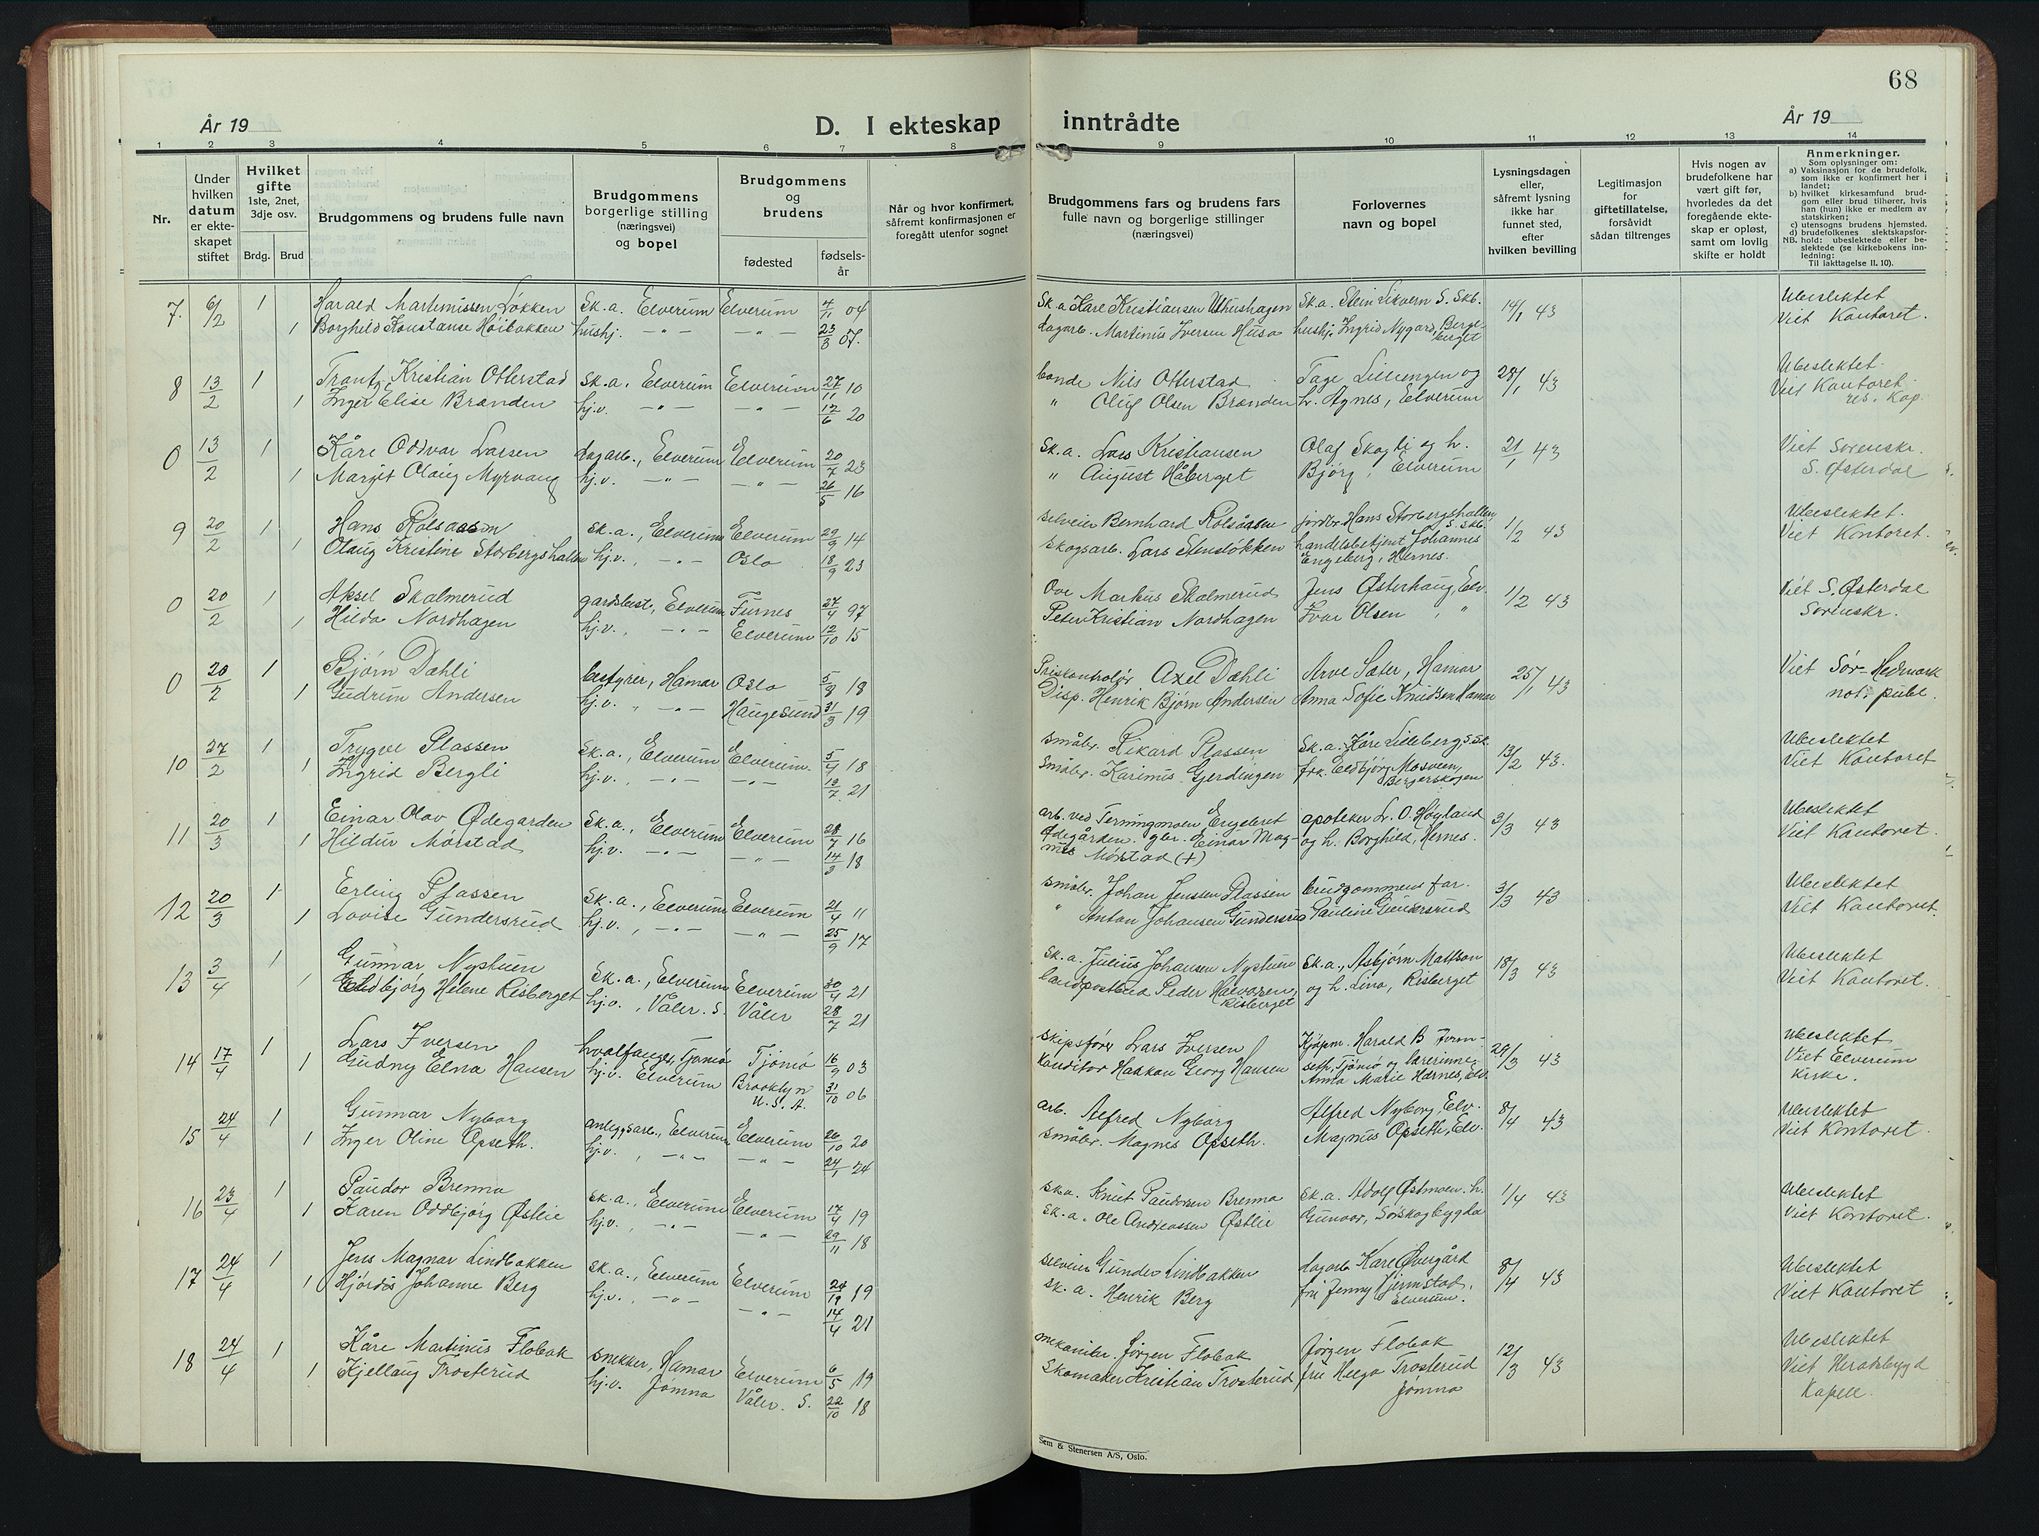 68
År 19
D. I ekteskap
inntrådte
År 19
1 2 3 4 5 6 7 8 9 10 11 12 13 14
Nr.
Under
hvilken
datum
er ekte-
skapet
stiftet
Hvilket
gifte
1ste, 2net,
3dje osv.
Brdg. Brud
Brudgommens og brudens fulle navn
Brudgommens
borgerlige stilling
(næringsvei)
og bopel
Brudgommens
og
brudens
fødested
fødsels-
år
Når og hvor konfirmert,
såfremt konfirmasjonen er
foregått utenfor sognet
Brudgommens fars og brudens fars
fulle navn og borgerlige stillinger
(næringsvei)
Forlovernes
navn og bopel
Lysningsdagen
eller,
såfremt lysning
ikke har
funnet sted,
efter
hvilken bevilling
Legitimasjon
for
giftetillatelse,
forsåvidt
sådan tiltrenges
Hvis nogen av
brudefolkene har
vært gift før,
hvorledes da det
foregående ekte-
skap er opløst,
samt om lovlig
skifte er holdt
Anmerkninger.
Som oplysninger om:
a) Vaksinasjon for de brudefolk,
som ikke er konfirmert her i
landet;
b) hvilket kirkesamfund brud-
gom eller brud tilhører, hvis
han (hun) ikke er medlem av
statskirken;
c) utensogns brudens hjemsted.
d) brudefolkenes slektskapsfor-
NB. hold: ubeslektede eller be-
slektede (se kirkebokens inn-
ledning:
Til iakttagelse II. 10).
7. 6/2 1 Harald Martinussen Løkken Sk.a. Elverum Elverum 4/11 04 Sk.a Kare Kristiansen Uthushagen Sk.a. Stein Likvern S. Skb. 14/1 43 Ubeslektet
1 Borghild Konstanse Høibakken hushj. -"- -"- 23/8 07. dagarb. Martinus Iversen Husa hushj. Ingrid Nygard, Berge- Viet Kontoret.
berget
8 13/2 1 Trantz Kristian Otterstad Sk.a., Elverum Elverum 27/11 10 bonde Nils Otterstad Tage Lillengen og 28/1 43 Ubeslektet
1 Inger Elise Brænden hj.v. -"- -"- 12/6 20 " Oluf Olsen Brænden h. Agnes, Elverum Viet Kontoret.
res. kap.
0 13/2 1 Kåre Oddvar Larsen dagarb., Elverum Elverum 20/7 23 Sk.a. Lars Kristiansen Olaf Skogli og h. 21/1 43 Viet Sorenskr.
1 Margit Olaug Myrvang hj.v. -"- -"- 26/5 16 " August Håberget Bjørg, Elverum S. Østerdal
9 20/2 1 Hans Rolsaasen Sk.a., Elverum Elverum 29/9 14 selveier Bernhard Rolsåsen jordbr. Hans Storbergshallen 1/2 43 Ubeslektet.
S. Skb.
1 Olaug Kristine Storbergshallen hj.v., -"- Oslo 18/9 23 skogsarb. Lars Stensløkken handelsbetjent Johannes Viet Kontoret.
Engeberg, Hernes.
0 20/2 1 Aksel Skalmerud gardsbest., Elverum Furnes 27/4 97 Ove Markus Skalmerud Jens Østerhaug, Elv. 1/2 43 Viet S. Østerdal
1 Hilda Nordhagen hj.v., -"- Elverum 12/10 15 Peter Kristian Nordhagen Ivar Olsen " Sorenskr.
0 20/2 1 Bjørn Dæhli bestyrer, Hamar Oslo 5/8 18 Priskontrolør Axel Dæhli Arve Sæter, Hamar 25/1 43 Viet Sør-Hedmark
1 Gudrun Andersen hj.v. " -"- Haugesund 31/3 19 Disp. Henrik Bjørn Andersen Anna Sofie Knudsen Hamar not. publ.
10 27/2 1 Trygve Plassen Sk.a., Elverum Elverum. 5/4 18 småbr. Rikard Plassen Sk.a. Kåre Lilleberg S. Sk. 13/2 43. Ubeslektet
1 Ingrid Bergli hj.v., -"- -"- 13/7 21 småbr. Karinus Gjerdingen frk. Eldbjørg Mosveen, Viet Kontoret
Bergerskogen
11 20/3 1 Einar Olav Ødegarden Sk.a., Elverum Elverum 28/7 16 arb. ved Terningmoen Engelbret apoteker L.O. Høyland 3/3 43 Ubeslektet
1 Hildur Mørstad hj.v. -"- -"- 14/3 18 Ødegården. gbr. Einar Mag- og h. Borghild, Hernes. Viet Kontoret.
nus Mørstad (+)
12 20/3 1 Erling Plassen Sk.a., Elverum Elverum 21/4 11 småbr. Johan Jenssen Plassen brudgommens far. 3/3 43 Ubeslektet
1 Lovise Gundersrud hj.v., -"- -"- 25/9 17 " Anton Johansen Gundersrud Pauline Gundersrud Viet Kontoret.
13 3/4 1 Gunnar Nystuen Sk.a., Elverum Elverum 30/4 21 Sk.a. Julius Johansen Nystuen Sk.a., Asbjørn Mattson 18/3 43 Ubeslektet
1 Eldbjørg Helene Risberget hj.v., Våler. S. Våler 28/7 21 landpostbud Peder Halvorsen, og h. Lina, Risberget Viet Kontoret.
Risberget
14 17/4 1 Lars Iversen hvalfanger, Tjømø Tjømø 16/9 03 skipsfører Lars Iversen Kjøpm. Harald B Ferm- 27/3 43 Ubeslektet
1 Gudny Elna Hansen hj.v. Elverum Brooklyn 31/10 06 Konditor Haakon Georg Hansen seth, Tjømø og lærerinne Viet Elverum
U.S.A. Anna Marie Hærnes, Elv. Kirke.
15 24/4 1 Gunnar Nyborg anleggsarb., Elverum Elverum 26/10 20 arb. Alfred Nyborg Alfred Nyborg, Elv. 8/4 43 Ubeslektet
1 Inger Oline Opseth. hj.v. , -"- -"- 24/1 24 småbr. Magnus Opseth. Magnus Opseth, Elv. Viet Kontoret.
16 23/4 1 Paudor Brenna Sk.a., Elverum Elverum 17/4 19 Sk.a. Knut Paudorsen Brenna Sk.a. Adolf Østmoen. h. 1/4 43 Ubeslektet
1 Karen Oddbjørg Østlie hj.v., -"- -"- 29/11 18 Sk.a. Ole Andreassen Østlie Gunvor, Sørskogbygda Viet Kontoret.
17 24/4 1 Jens Magnar Lindbakken Sk.a., Elverum Elverum 24/12 19 selveier Gunder Lindbakken dagarb Kare Øvergård 8/4 43 Ubeslektet
1 Hjørdis Johanne Berg hj.v., -"- -"- 14/4 21 Sk.a. Henrik Berg fru Jenny Hjemstad, Viet Kontoret
Elverum.
18 24/4 1 Kåre Martinus Flobak snekker, Hamar Elverum 6/5 19 mekaniker. Jørgen Flobak Jørgen Flobak 12/3 43 Ubeslektet
1 Kjellaug Trosterud hj.v. Jømna Våler. S. 22/10 18 Skomaker Kristian Trosterud fru Helga Trosterud Viet Heradsbygd
Jømna Kapell.
Sem & Stenersen A/S, Oslo.